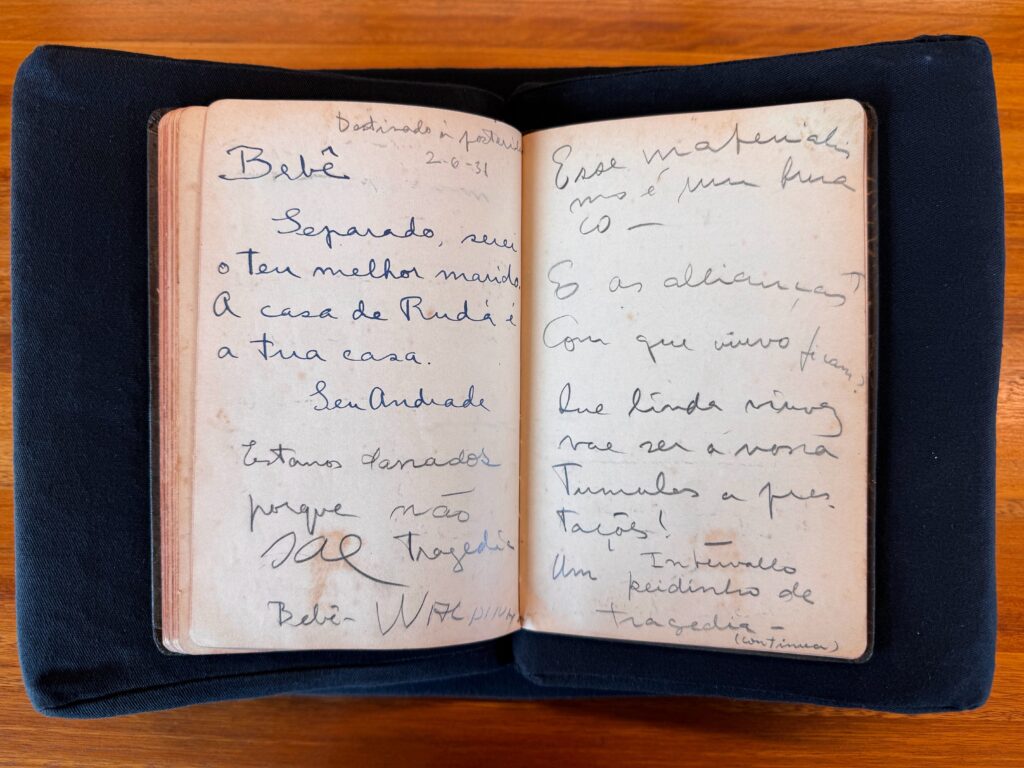 Destinado á posterida
2-6-31
Bebê
Separado, serei
o teu melhor marido.
A casa de Rudá é
a tua casa.
Seu Andrade
Estamos danados
porque não
sae tragedia
Bebê-
Esse materialis
mo é um bura
co —
E as allianças?
Com que viuvo ficam?
Que linda viuvez
vae ser a nossa
Tumulos a pres-
tações!
Um Intervallo
peidinho de
tragedia —
(continua)